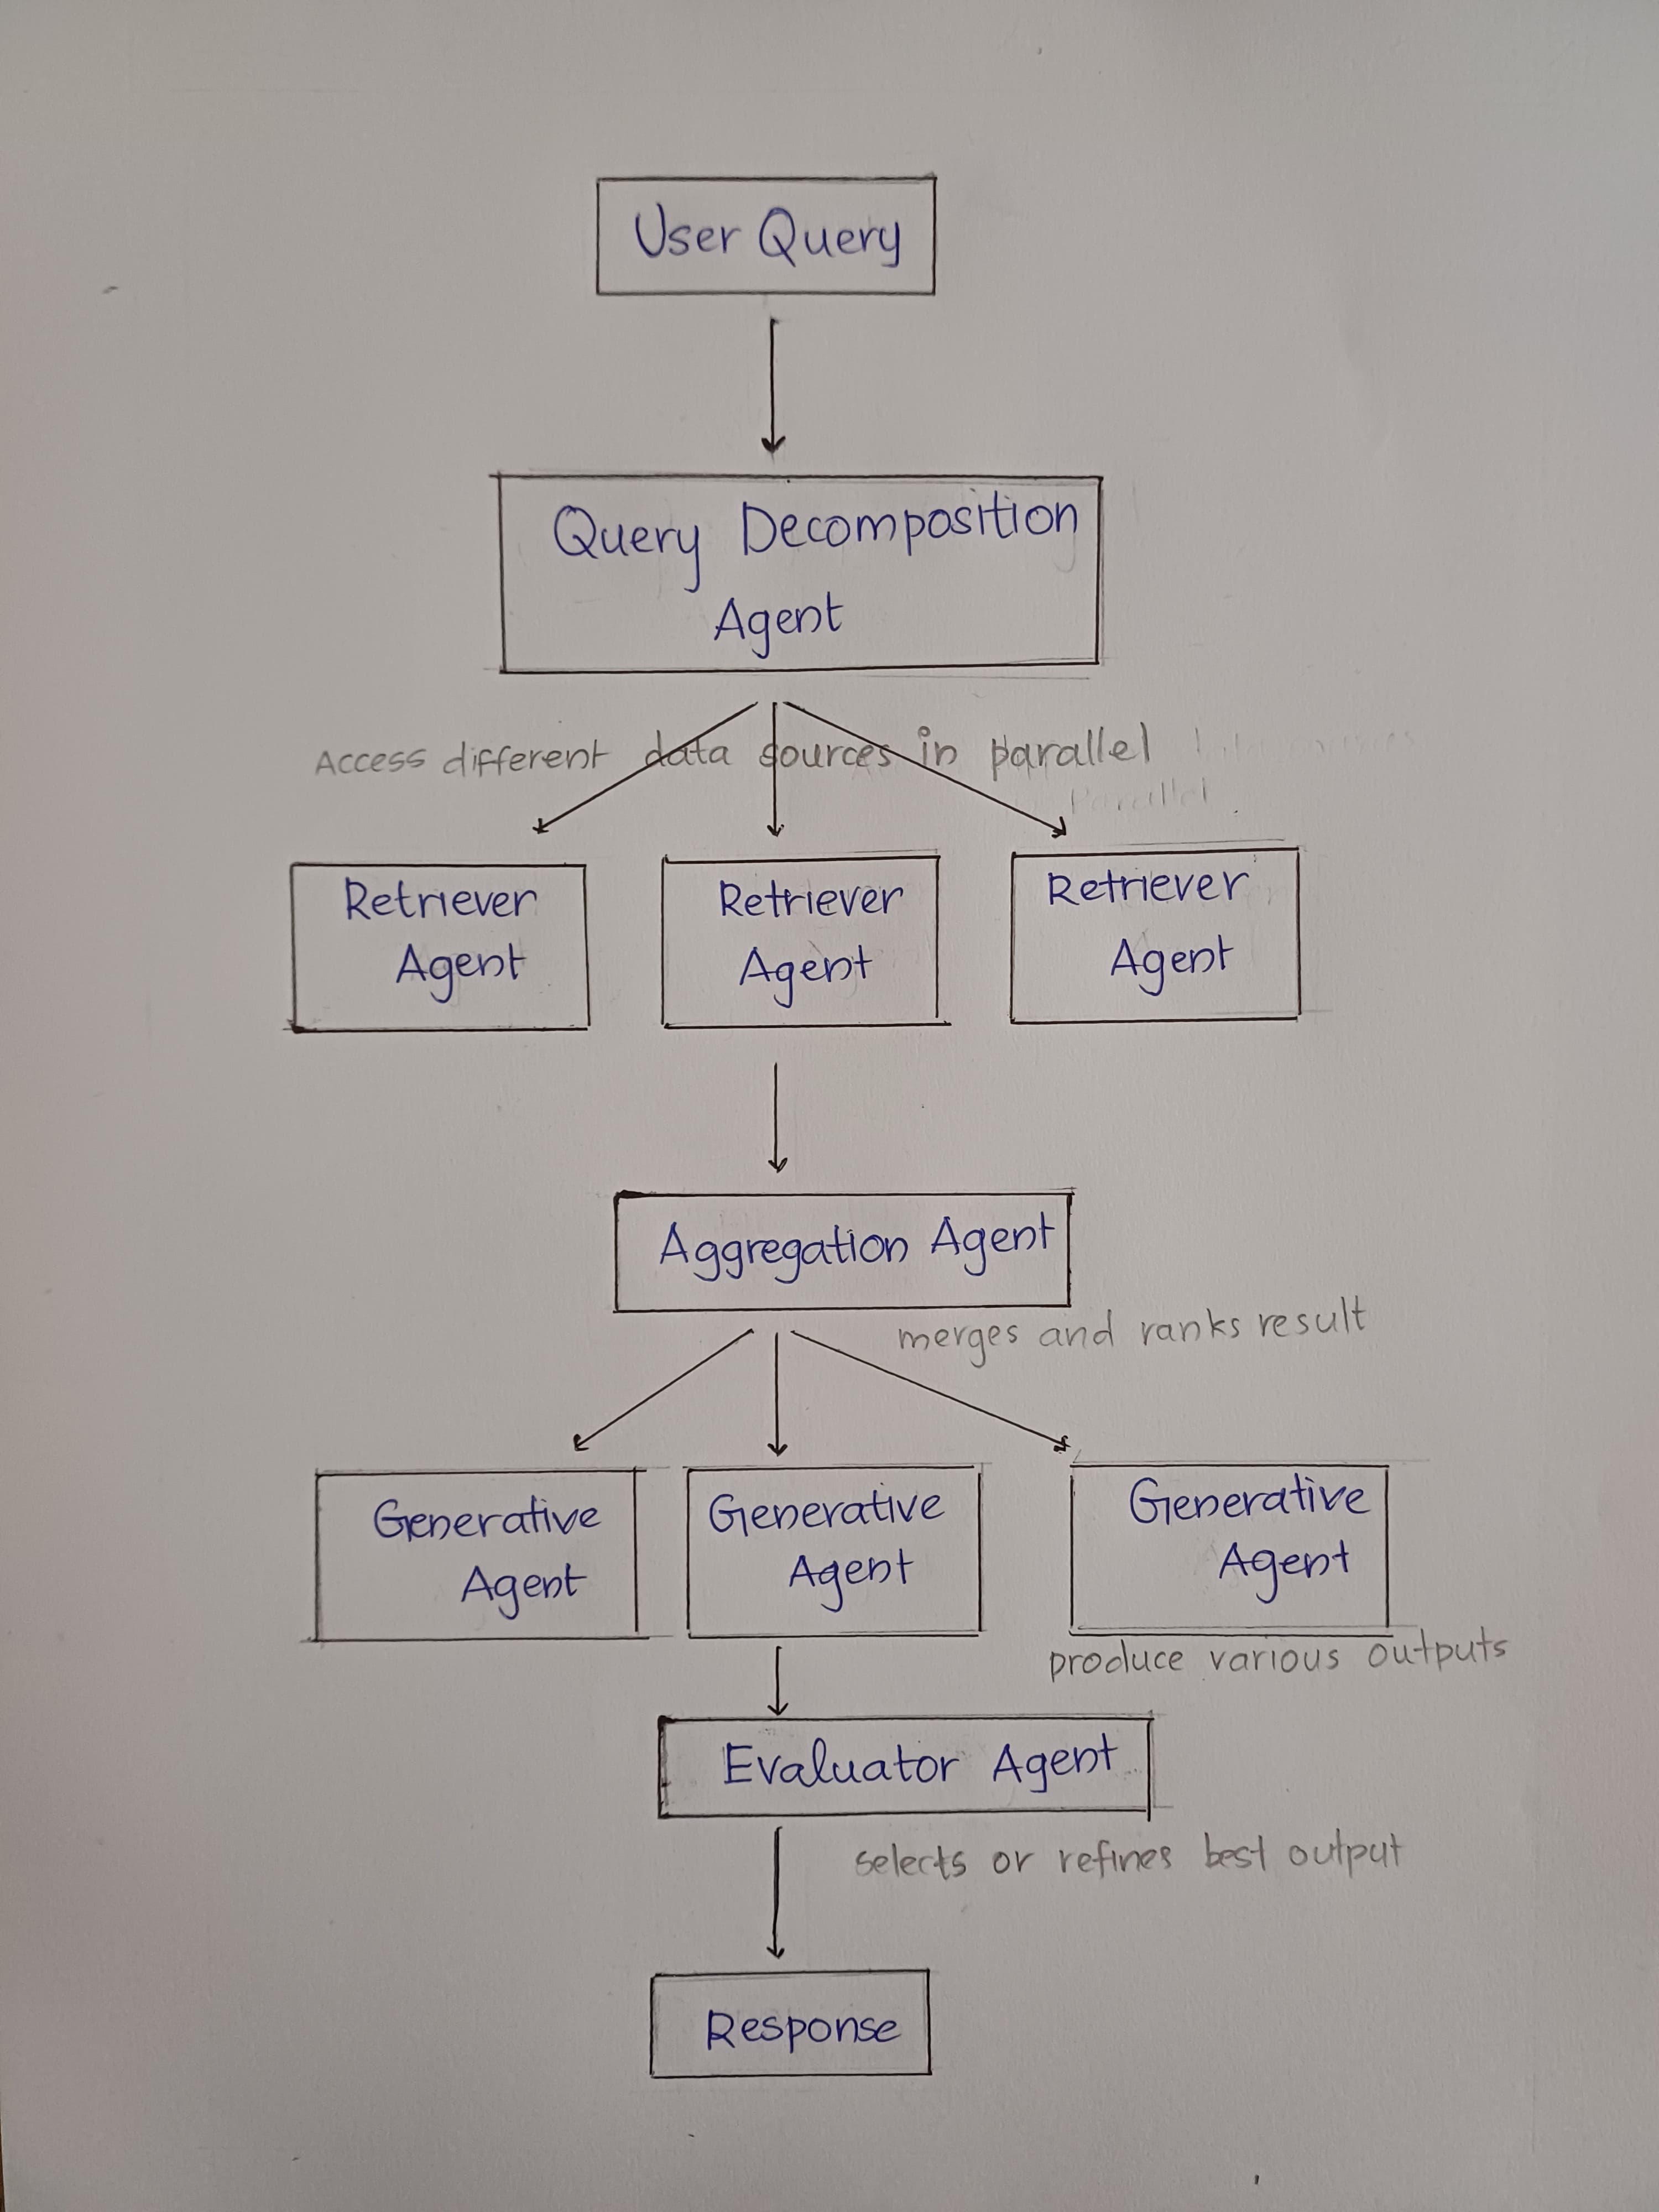 User Query
Query Decomposition
Agent
Access different data sources in parallel
Parallel
Retriever
Agent
Retriever
Agent
Retriever
Agent
Aggregation Agent
merges and ranks result
Generative
Agent
Generative
Agent
Generative
Agent
produce various outputs
Evaluator Agent
selects or refines best output
Response